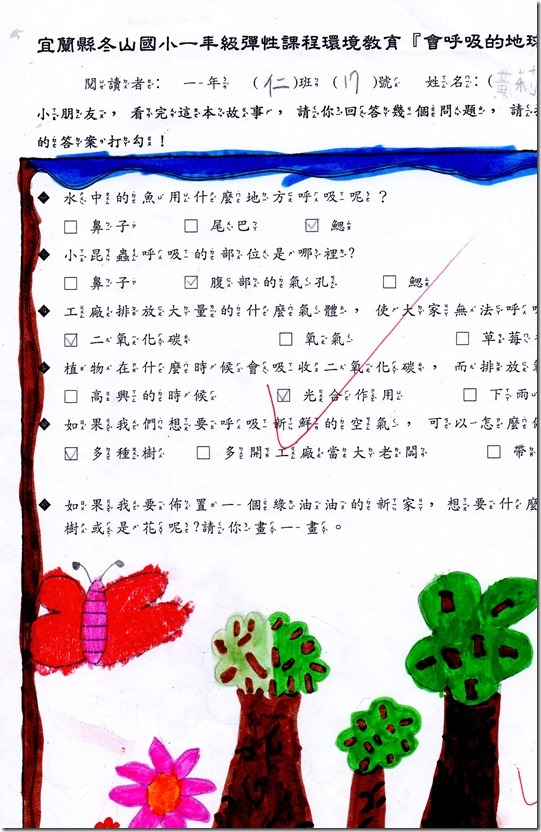 宜蘭縣冬山國小一年級彈性課程環境教育『會呼吸的地球
閱讀者: 一年 (仁)班 (17)號 姓名:(黃莉
小朋友,看完這本故事,請你回答幾個問題,請
的答案打勾!
◆ 水中的魚用什麼地方呼吸呢?
□ 鼻子 □ 尾巴 ☑ 鰓
◆ 小昆蟲呼吸的部位是哪裡?
□ 鼻子 ☑ 腹部的氣孔 □ 鰓
◆ 工廠排放大量的什麼氣體,使大家無法呼吸
☑ 二氧化碳 □ 氧氣 □ 草莓
◆ 植物在什麼時候會吸收二氧化碳,而排放氧
□ 高興的時候 ☑ 光合作用 □ 下雨
◆ 如果我們想要呼吸新鮮的空氣,可以怎麼做
☑ 多種樹 □ 多開工廠當大老闆 □ 帶
◆ 如果我要佈置一個綠油油的新家,想要什麼
樹或是花呢?請你畫一畫。